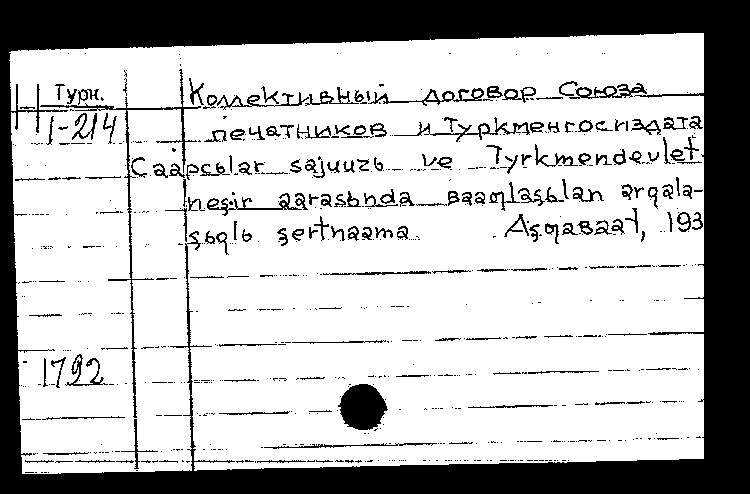 Турн.
1-214
Коллективный договор Союза
печатников и Туркменгосиздата
Caapcьlar sajuuzь ve Tyrkmendevlet-
neşir aarasьnda ʙaaƣlaşьlan arqala-
şьqlь şertnaama Aşƣaʙaat, 193
1792